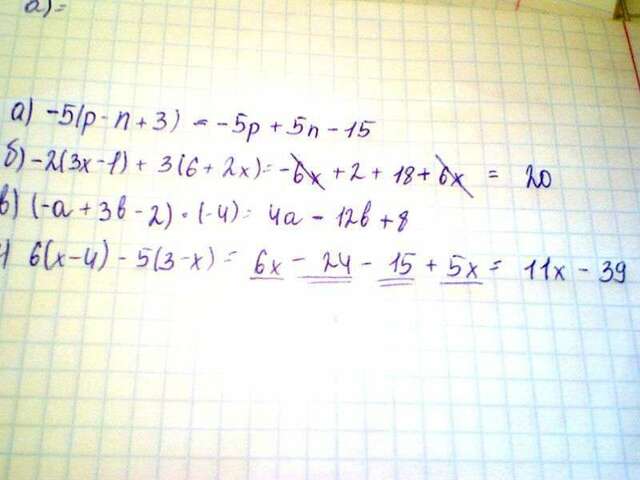 а) =
а) -5(р - n + 3) = -5р + 5n - 15
б) -2(3x - 1) + 3(6 + 2x) = -6x + 2 + 18 + 6x = 20
в) (-а + 3в - 2) · (-4) = 4а - 12в + 8
6(x - 4) - 5(3 - x) = 6x - 24 - 15 + 5x = 11x - 39